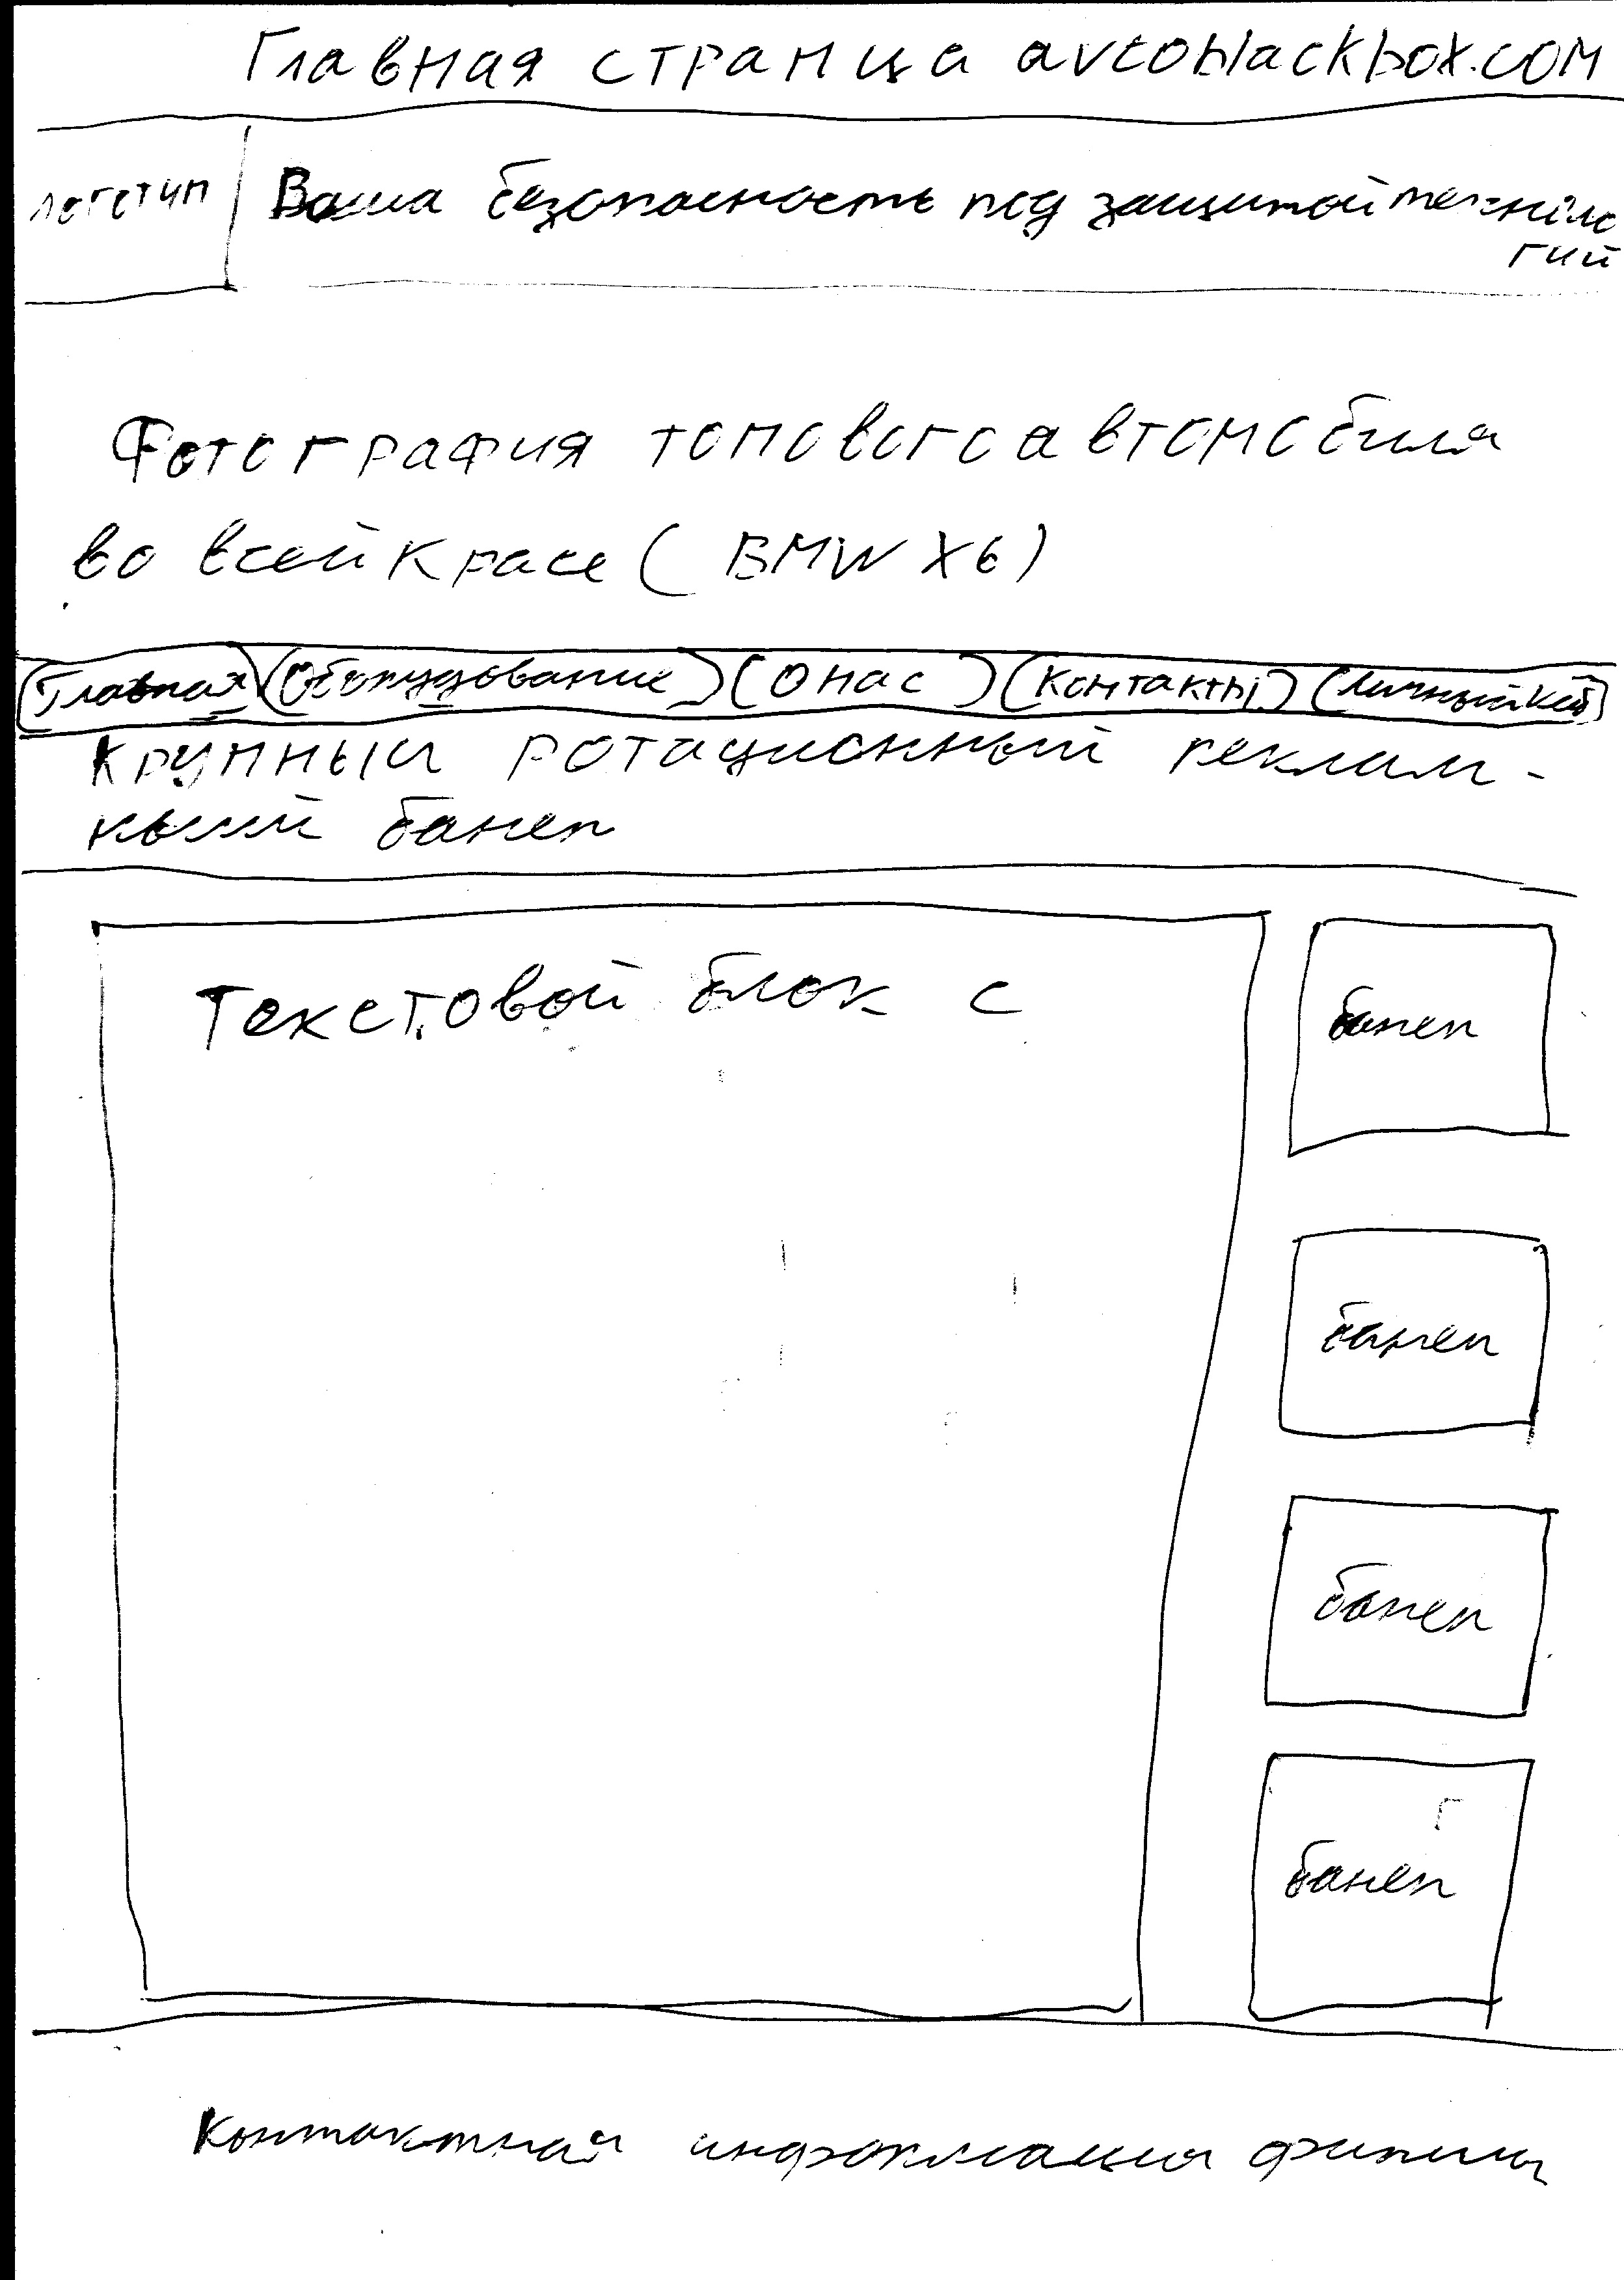 Главная страница avtoblackbox.com
логотип Ваша безопасность под защитой техноло
гий
Фотография топового автомобиля
во всей красе (BMW X6)
Главная Оборудование О нас Контакты Личный каб
Крупный ротационный реклам-
ный банер
Текстовой блок с
банер
банер
банер
банер
Контактная информация фирмы